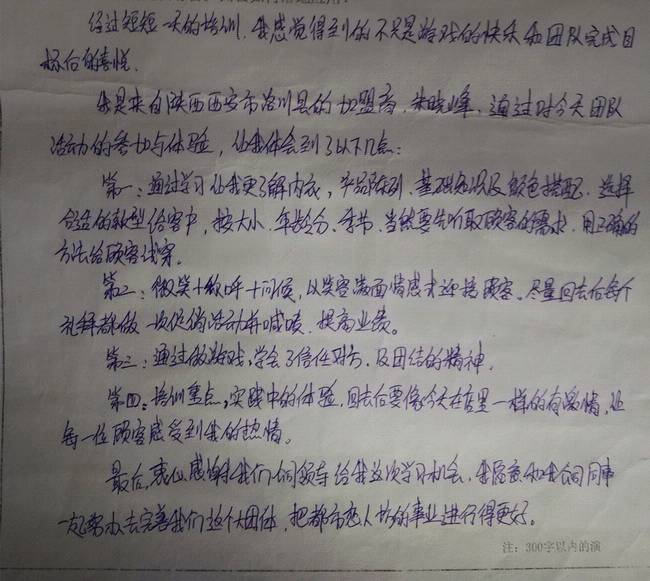 经过短短一天的培训,我感觉得到的不只是游戏的快乐和团队完成目
标后的喜悦.
我是来自陕西西安市洛川县的加盟商,朱晓峰,通过对今天团队
活动的参加与体验,他我体会到了以下几点:
第一:通过学习他我更了解内衣,产品陈列,基础知识及颜色搭配.选择
合适的款型给客户,按大小、年龄分、季节.当然要先听取顾客的需求.用正确的
方法给顾客试穿。
第二:微笑+称呼+问候,以笑容满面情感才迎接顾客。尽量回去后每个
礼拜都做一次促销活动并喊唛.提高业绩。
第三:通过做游戏,学会了信任对方.及团结的精神.
第四:培训重点,实践中的体验.回去后要像今天在店里一样的有激情,让
每一位顾客感受到我的热情。
最后,衷心感谢我们公司领导给我这次学习机会,我愿意和我公司同事
一起努力去完善我们这个大团体,把都市恋人的事业进行得更好。
注:300字以内的演